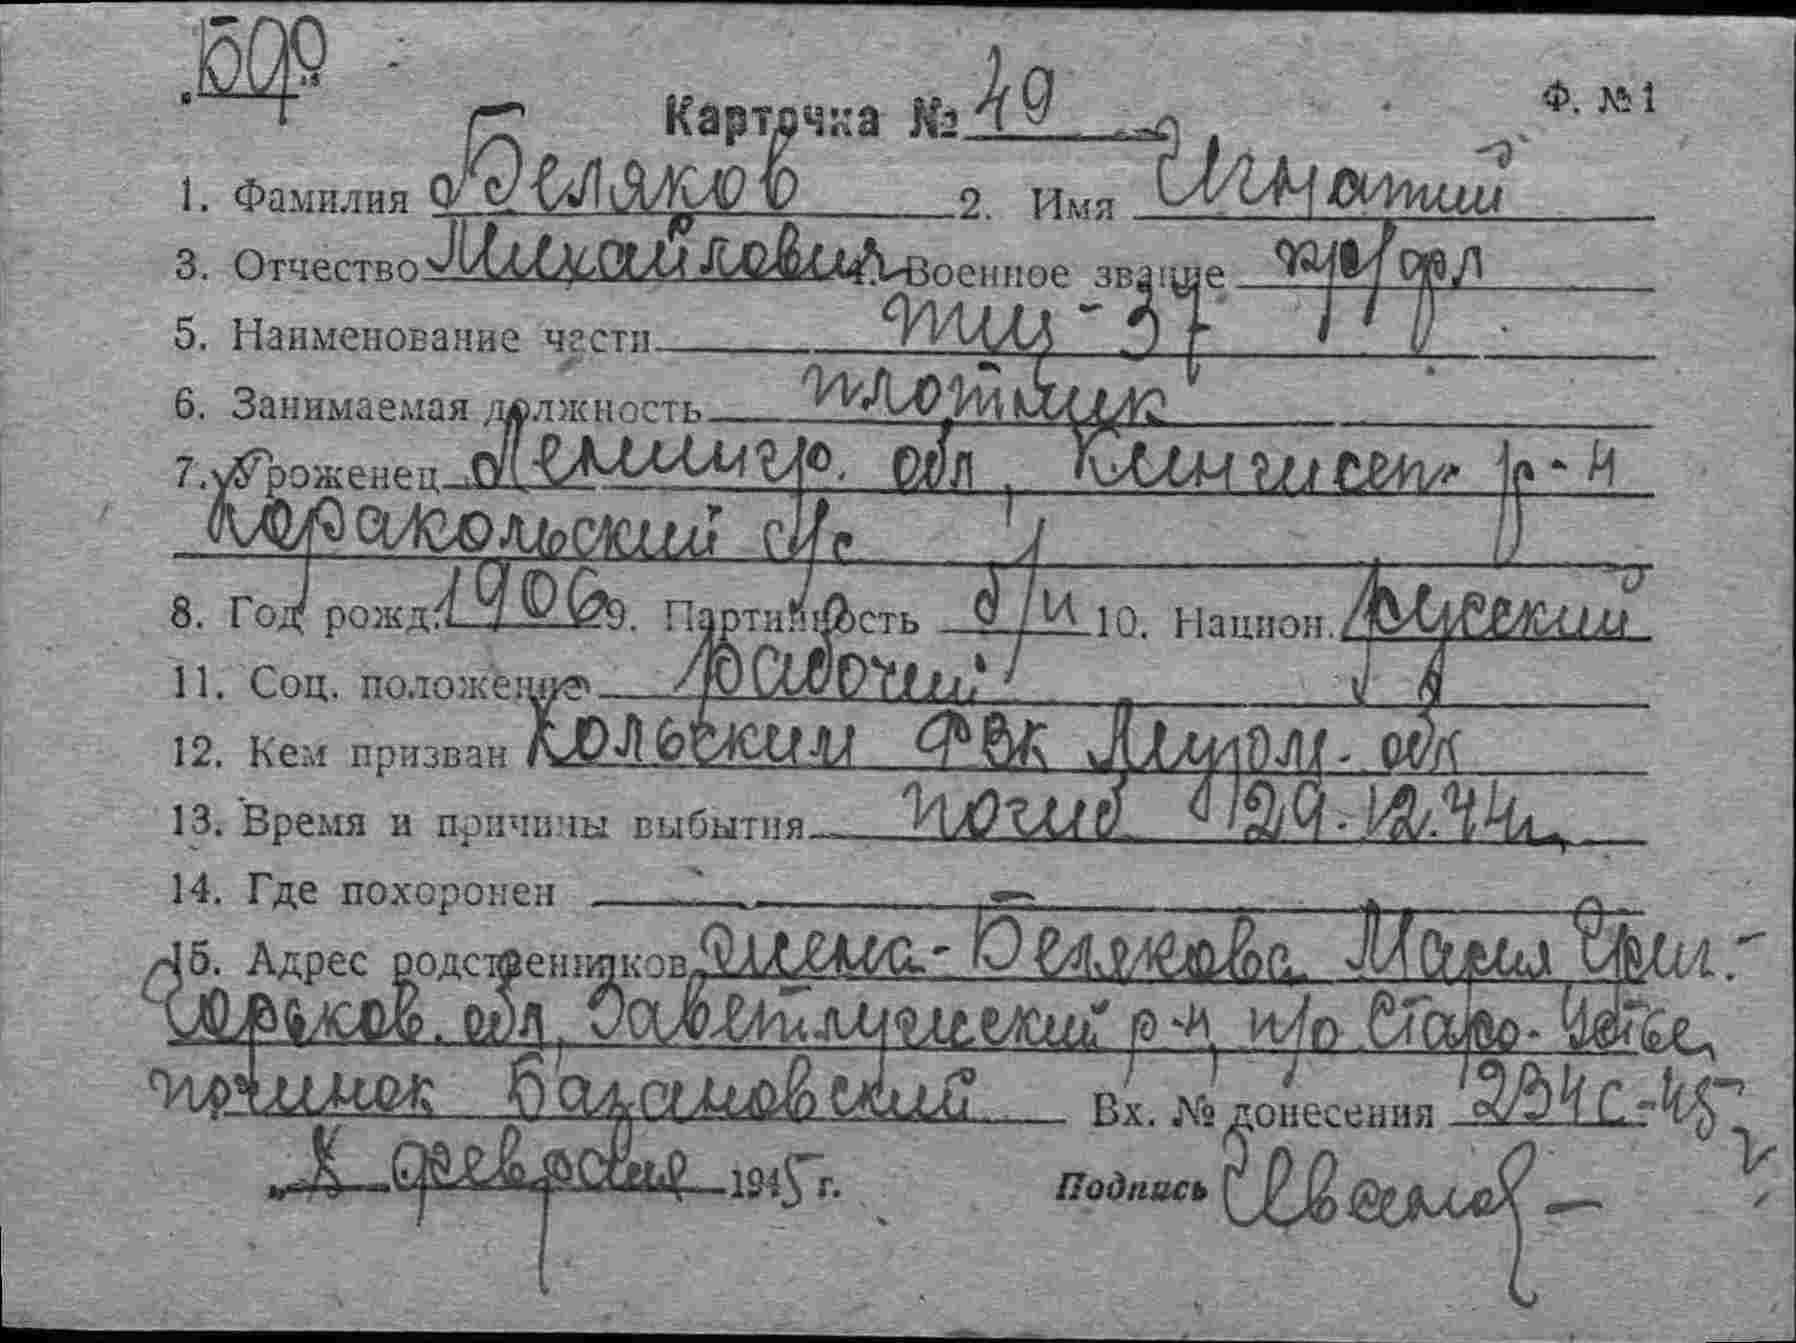 Ф. № 1
Карточка № 49
1. Фамилия Беляков 2. Имя Игнатий
3. Отчество Михайлович 4. Военное звание кр/фл
5. Наименование части тщ-37
6. Занимаемая должность плотник
7. Уроженец Ленингр. обл, Кингисеп. р-н
Каракольский с/с
8. Год рожд. 1906 9. Партийность б/п 10. Национ. русский
11. Соц. положение рабочий
12. Кем призван Кольским РВК Мурм. обл
13. Время и причины выбытия погиб 29.12.44г.
14. Где похоронен
15. Адрес родственников жена - Белякова Мария Григ. -
Горьков. обл, Заветлужский р-н, п/о Старо-Устье,
починок Базановский Вх. № донесения 234с-45
февраля 1945 г. Подпись